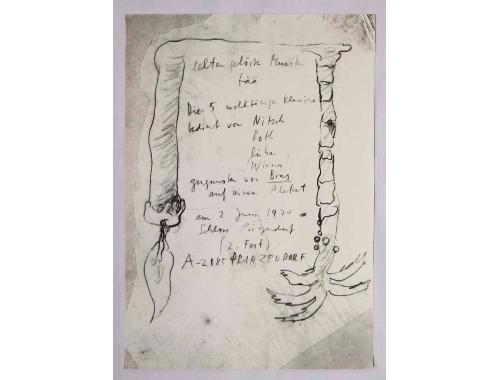 selten gehörte Musik
Die 5 wolltönige Klaviere
bedient von Nitsch
Roth
Rühm
Wiener
von Brus
auf einem Plakat
am 2 Juni 1974
Schloss Prinzendorf
(2. Fest)
A-2185 PRINZENDORF